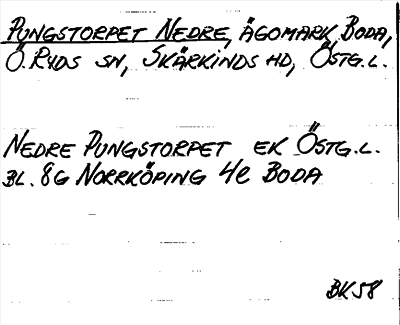 PUNGSTORPET NEDRE, ÄGOMARK BODA,
Ö. RYDS SN, SKÄRKINDS HD, ÖSTG.L.
NEDRE PUNGSTORPET EK ÖSTG.L.
BL. 8G NORRKÖPING 4e BODA
BK58